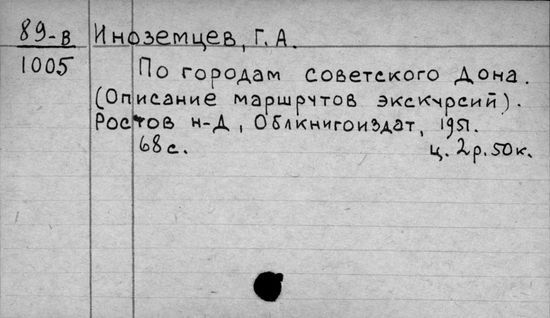 89-в
1005
Иноземцев, Г. А.
По городам советского Дона.
(Описание маршрутов экскурсий).
Ростов н-Д, Облкнигоиздат, 1951.
68 с. ц. 2 р. 50 к.